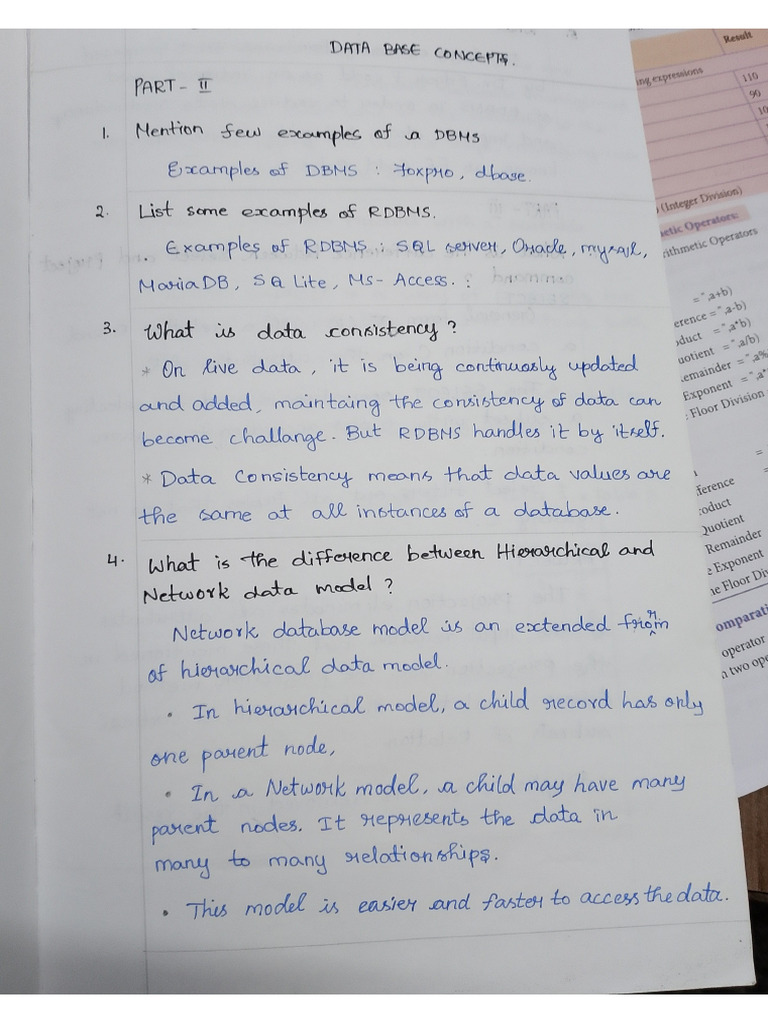 DATA BASE CONCEPTS.
PART - II
1. Mention few examples of a DBMS
Examples of DBMS : Foxpro, dbase.
2. List some examples of RDBMS.
Examples of RDBMS : SQL server, Oracle, mysql,
Maria DB, SQ Lite, Ms- Access. :
3. What is data consistency ?
* On live data, it is being continuosly updated
and added, maintaing the consistency of data can
become challange. But RDBMS handles it by itself.
* Data Consistency means that data values are
the same at all instances of a database.
4. What is the difference between Hierarchical and
Network data model ?
Network database model is an extended from
of hierarchical data model.
• In hierarchical model, a child record has only
one parent node,
• In a Network model, a child may have many
parent nodes. It represents the data in
many to many relationships.
• This model is easier and faster to access the data.
Result
ing expressions
110
90
(Integer Division)
etic Operators:
ithmetic Operators
=",a+b)
erence =",a-b)
duct =",a*b)
uotient =",a/b)
emainder =",a%
Exponent =",a*
Floor Division
ference
roduct
Quotient
Remainder
e Exponent
he Floor Div
omparati
operator
n two ope